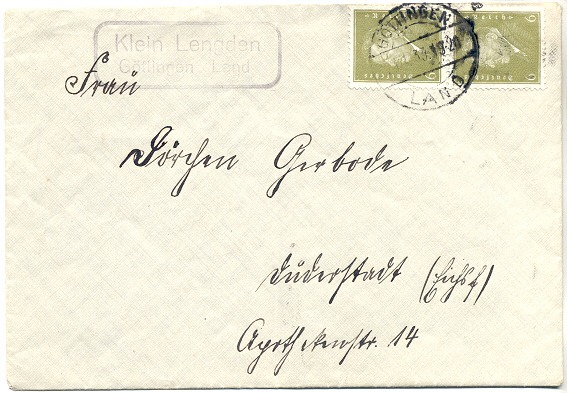 Klein Lengden
Göttingen Land
GÖTTINGEN
LAND
Deutsches Reich
6
Deutsches Reich
6
Frau
Dörchen Gerbode
Duderstadt (Eichsf.)
Apothekenstr. 14